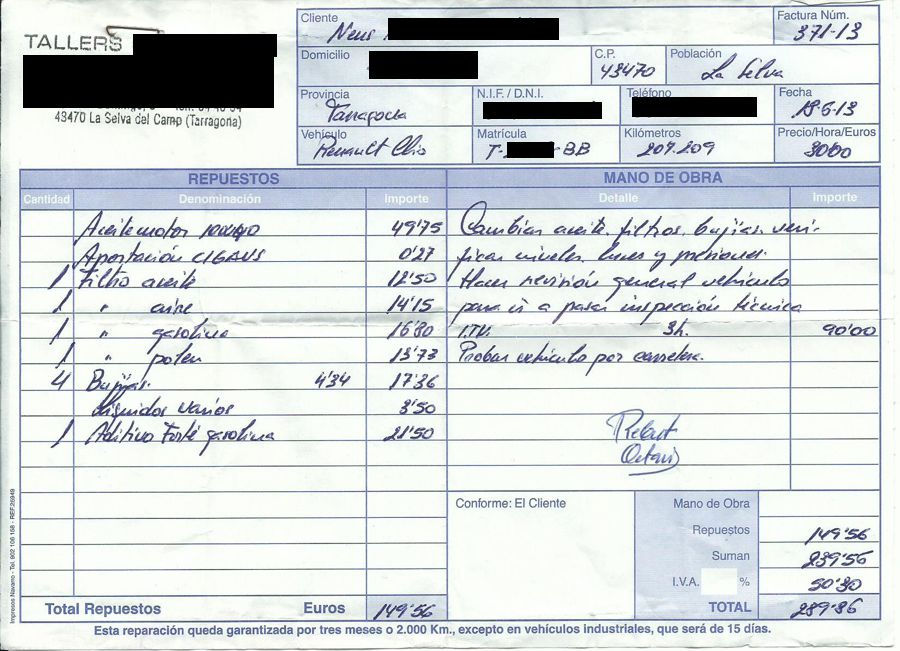 TALLERS
43470 La Selva del Camp (Tarragona)
Cliente
Neus
Factura Núm.
371-13
Domicilio
C.P.
43470
Población
La Selva
Provincia
Tarragona
N.I.F. / D.N.I.
Teléfono
Fecha
18-6-13
Vehículo
Renault Clio
Matrícula
T- -BB
Kilómetros
207.209
Precio/Hora/Euros
30'00
REPUESTOS
MANO DE OBRA
Cantidad Denominación Importe
Detalle Importe
Aceite motor 49'75
Aportación CIGAUS 0'27
1 Filtro aceite 12'50
1 " aire 14'15
1 " gasolina 16'80
1 " polen 13'73
4 Bujías. 4'34 17'36
Liquidos varios 3'50
1 Aditivo Forté gasolina 21'50
Cambiar aceite, filtros, bujías, veri-
ficar niveles, luces y presiones.
Hacer revisión general vehículo
para ir a pasar inspección técnica
I.T.V. 3h. 90'00
Probar vehículo por carretera.
Conforme: El Cliente
Mano de Obra
Repuestos 149'56
Suman 239'56
I.V.A. % 50'30
TOTAL 289'86
Total Repuestos Euros 149'56
Esta reparación queda garantizada por tres meses o 2.000 Km., excepto en vehículos industriales, que será de 15 días.
Impresos Navarro - Tel. 902 108 158 - REF.26949